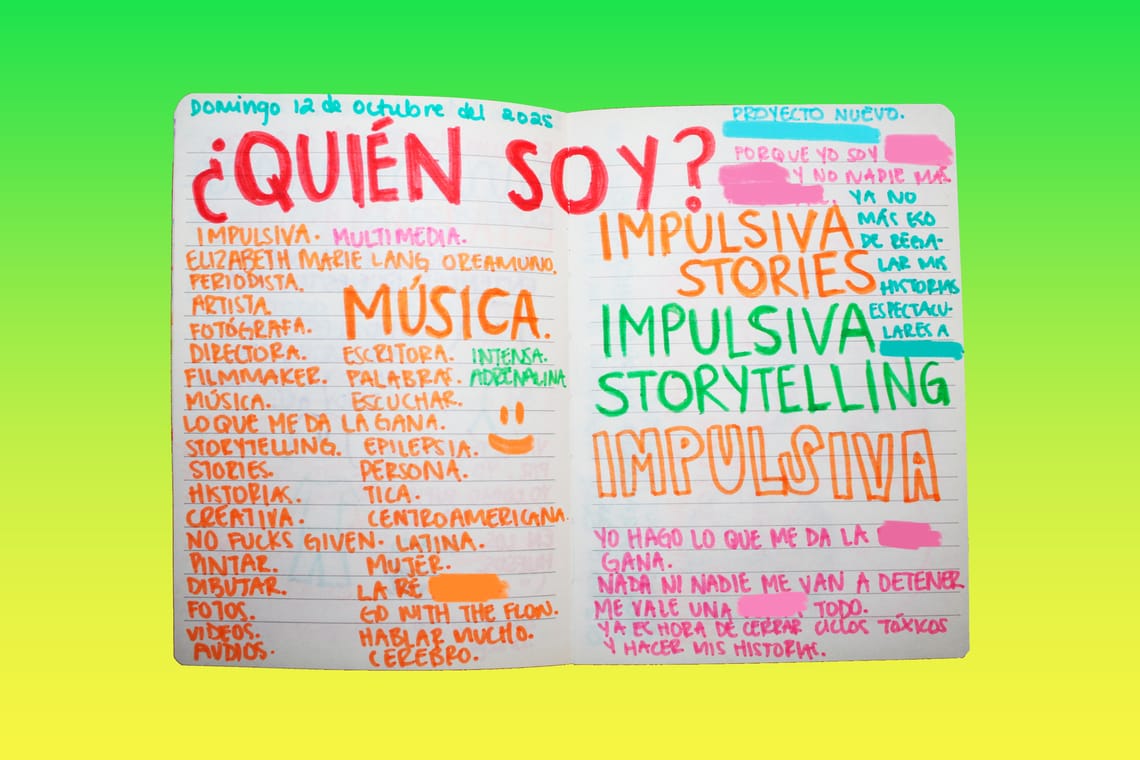 Domingo 12 de octubre del 2025
¿QUIÉN SOY?
IMPULSIVA. MULTIMEDIA.
ELIZABETH MARIE LANG OREAMUNO.
PERIODISTA.
ARTISTA.
MÚSICA.
FOTÓGRAFA.
DIRECTORA. ESCRITORA. INTENSA.
FILMMAKER. PALABRAS. ADRENALINA
MÚSICA. ESCUCHAR.
LO QUE ME DA LA GANA.
STORYTELLING. EPILEPSIA.
STORIES. PERSONA.
HISTORIAS. TICA.
CREATIVA. CENTROAMERICANA.
NO FUCKS GIVEN. LATINA.
PINTAR. MUJER.
DIBUJAR. LA RE
FOTOS. GO WITH THE FLOW.
VIDEOS. HABLAR MUCHO.
AUDIOS. CEREBRO.
PROYECTO NUEVO.
PORQUE YO SOY
Y NO NADIE MÁS
YA NO
MÁS ESO
DE REGA-
LAR MIS
HISTORIAS
ESPECTACU-
LARES A
IMPULSIVA
STORIES
IMPULSIVA
STORYTELLING
IMPULSIVA
YO HAGO LO QUE ME DA LA
GANA.
NADA NI NADIE ME VAN A DETENER
ME VALE UNA TODO.
YA ES HORA DE CERRAR CICLOS TÓXICOS
Y HACER MIS HISTORIAS.